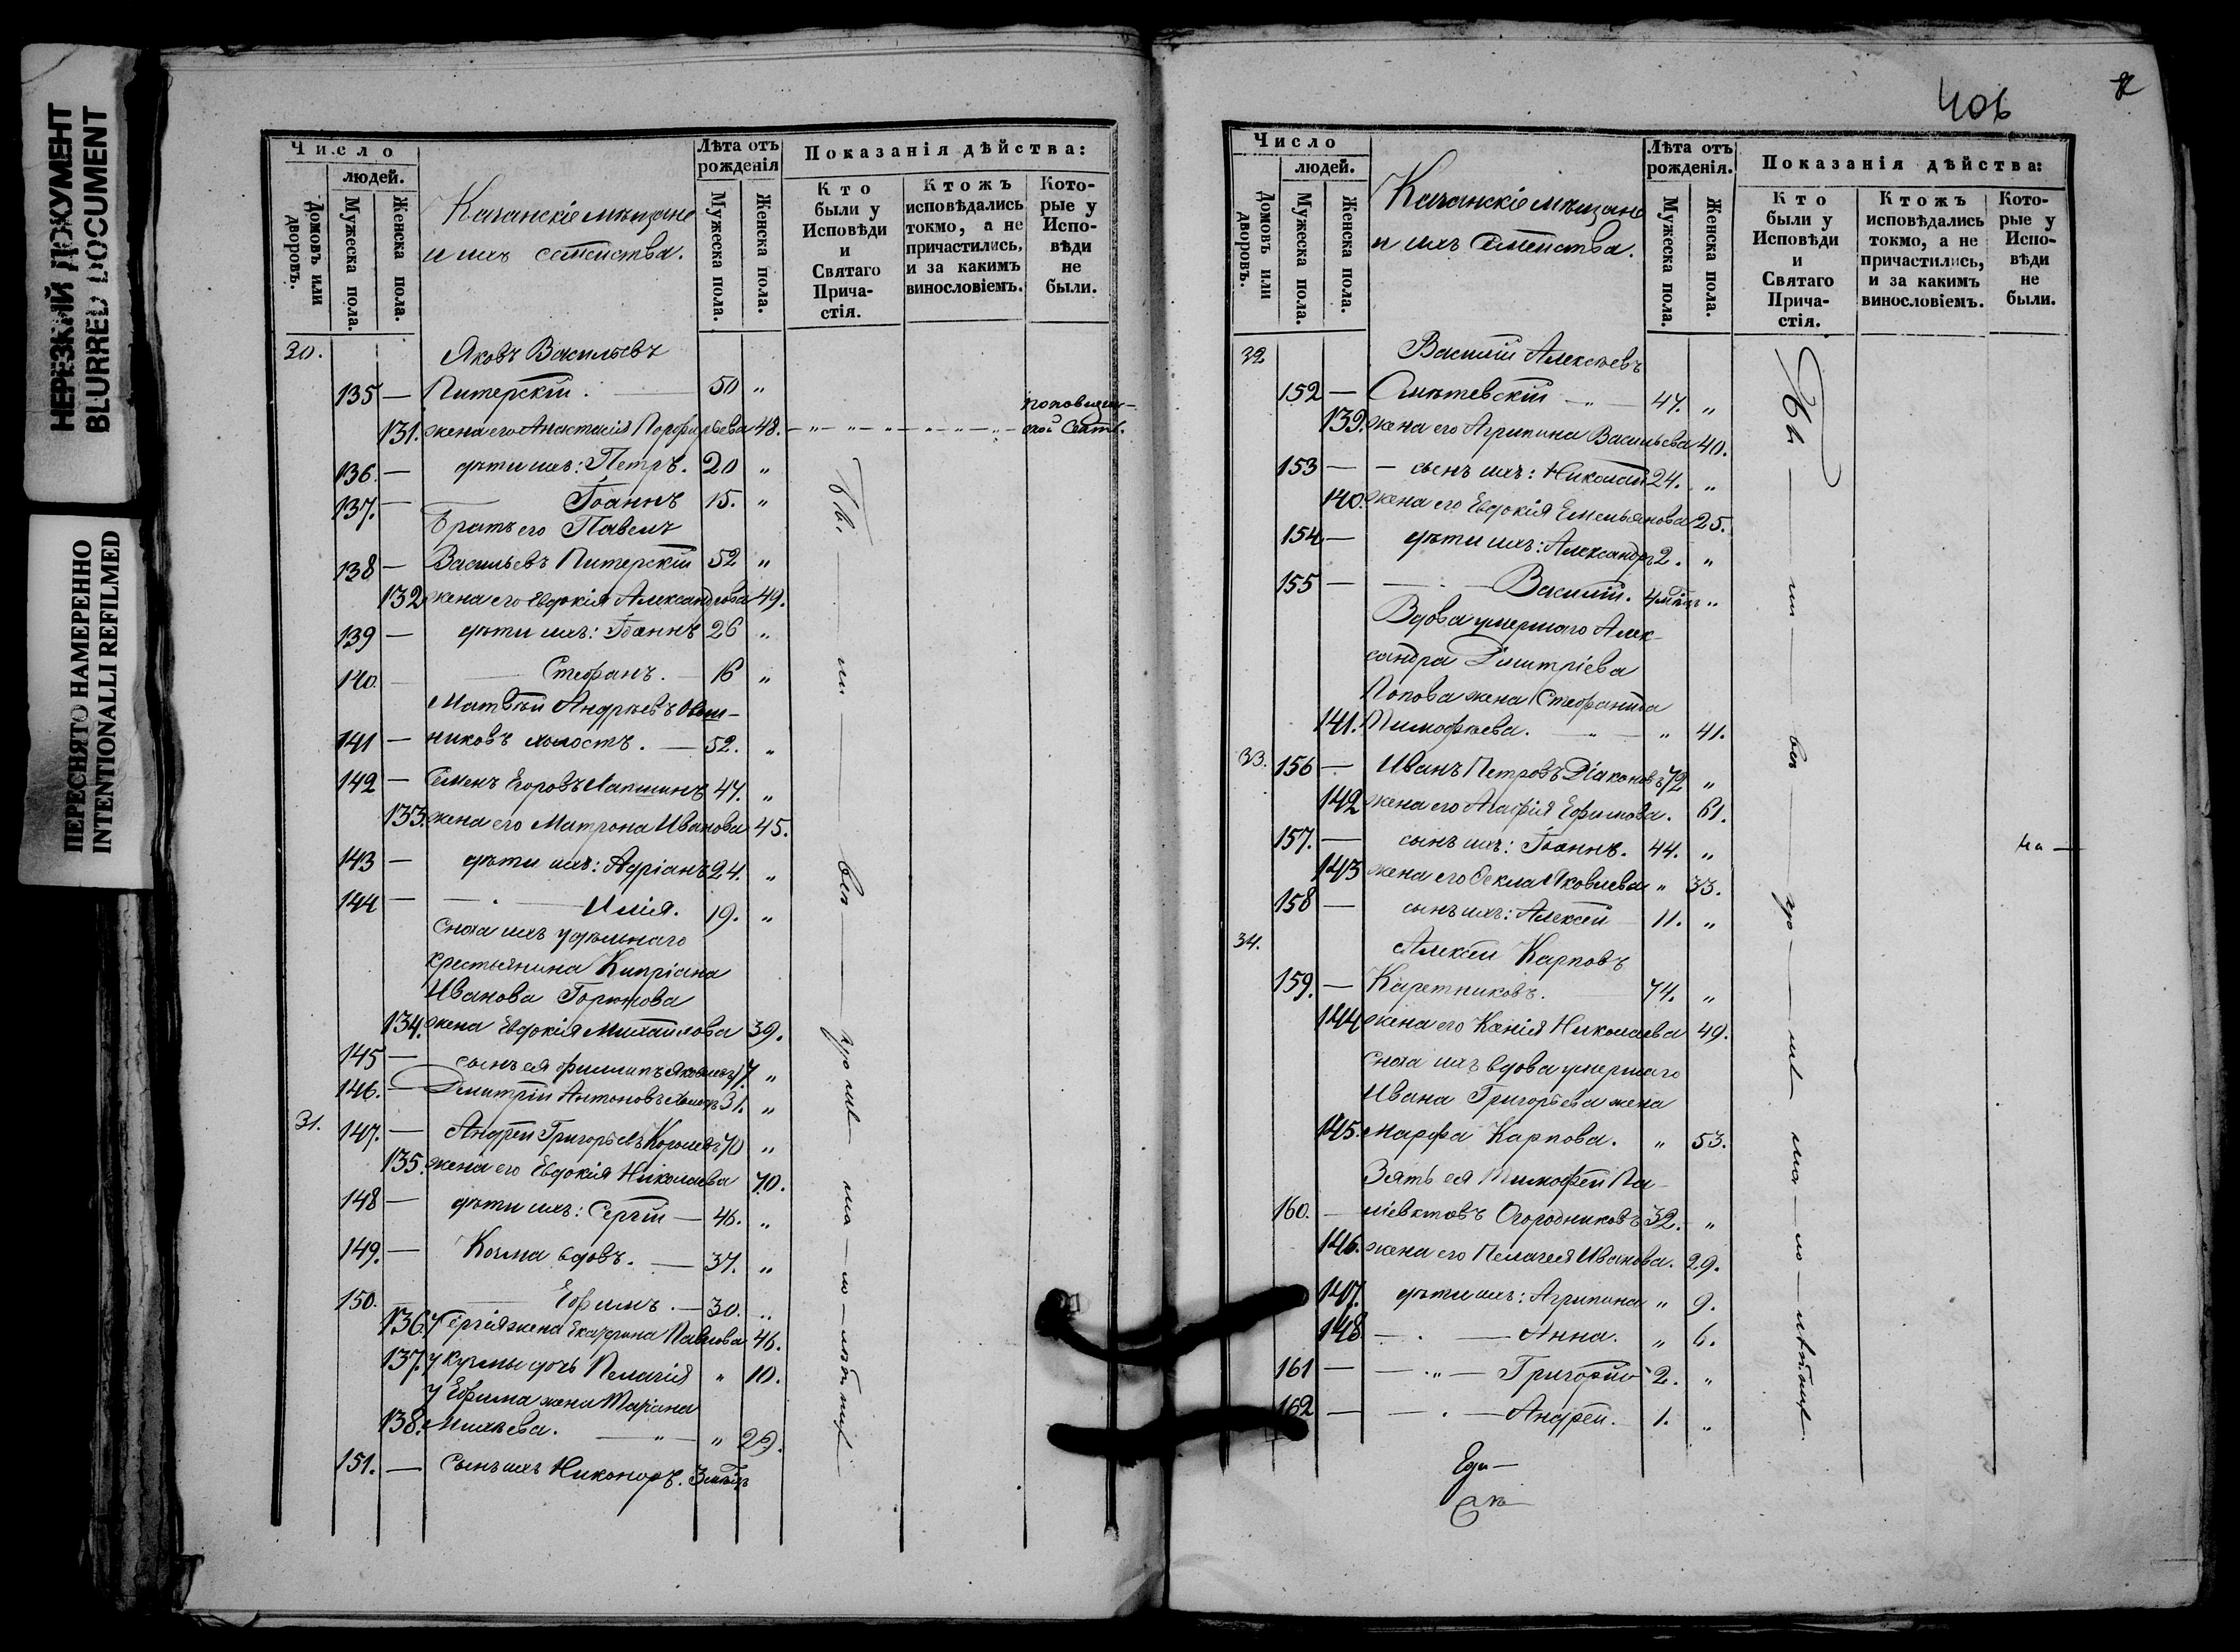 НЕРЕЗКИЙ ДОКУМЕНТ
BLURRED DOCUMENT
ПЕРЕСНЯТО НАМЕРЕННО
INTENTIONALLI REFILMED
Число
людей.
Домовъ или дворовъ.
Мужеска пола.
Женска пола.
и ихъ семейства.
Лѣта отъ рожденія
Мужеска пола.
Женска пола.
Показанія дѣйства:
Кто были у Исповѣди и Святаго Прича-стія.
Ктожъ исповѣдались токмо, а не причастились, и за какимъ винословіемъ.
Кото-рые у Испо-вѣди не были.
30. Яковъ Васильевъ
135 — Питерскій. — 50 "
131. жена его Анастасія Порфирьева 48.
136. — дѣти ихъ: Петръ. 20 "
137. — Іоаннъ 15. "
Братъ его Павелъ
138 — Васильевъ Питерскій 52 "
132 жена его Евдокія Александрова 49.
139 — дѣти ихъ: Іоаннъ 26 "
140. — Стефанъ. — 16 "
Матвѣй Андреевъ
141 — никовъ холостъ. — 52. "
142 — Семенъ Егоровъ Лапшинъ 47. "
133. жена его Матрона Иванова 45.
143 — дѣти ихъ: Адріанъ 24. "
144 — Илія. 19. "
Сноха ихъ удѣльнаго
крестьянина Кипріана
Иванова
134. жена Евдокія Михайлова 39.
145 — сынъ ея Филиппъ Яковлевъ 17 "
146. — Дмитрій Антоновъ 31. "
31. 147. — Андрей Григорьевъ 70 "
135. жена его Евдокія Николаева 70.
148 — дѣти ихъ: Сергій — 46. "
149. — Козма вдовъ. — 37. "
150. — Ефимъ. — 30. "
136. У Сергія жена Екатерина Павлова 46.
137. У Кузмы дочь Пелагія " 10.
У Ефима жена Маріана
138. Михѣева. — " — " 29.
151. — Сынъ ихъ Никоноръ. 3 мѣсц
406
Число
людей.
Домовъ или дворовъ.
Мужеска пола.
Женска пола.
и ихъ Семейства.
Лѣта отъ рожденія.
Мужеска пола.
Женска пола.
Показанія дѣйства:
Кто были у Исповѣди и Святаго Прича-стія.
Ктожъ исповѣдались токмо, а не причастились, и за какимъ винословіемъ.
Кото-рые у Испо-вѣди не были.
32 Василій Алексѣевъ
152 — 47. "
139. жена его Агрипина Васильева 40.
153 — сынъ ихъ: Николай 24. "
140. жена его Евдокія Емельянова 25.
154 — дѣти ихъ: Александръ 2. "
155 — Василій. 4 мѣсц "
Вдова умершаго Алек-
сандра Дмитріева
Попова жена Стефанида
141. Тимофѣева. " 41.
33. 156 — Иванъ Петровъ Діаконовъ 72 "
142 жена его Агафія Ефимова. 61.
157. — сынъ ихъ: Іоаннъ. 44. "
143 жена его Ѳекла Яковлева " 33.
158 — сынъ ихъ: Алексѣй 11. "
34. Алексѣй Карповъ
159. — Каретниковъ. 74. "
144 жена его Ксенія Николаева 49.
Сноха ихъ вдова умершаго
Ивана Григорьева жена
145. Марфа Карпова. " 53.
Зять ея Тимофей По-
160. — ліевктовъ Огородниковъ 32. "
146. жена его Пелагея Иванова. 29.
147. дѣти ихъ: Агрипина " 9.
148 — Анна. " 6.
161 — Григорій 2. "
162 — Андрей. 1. "